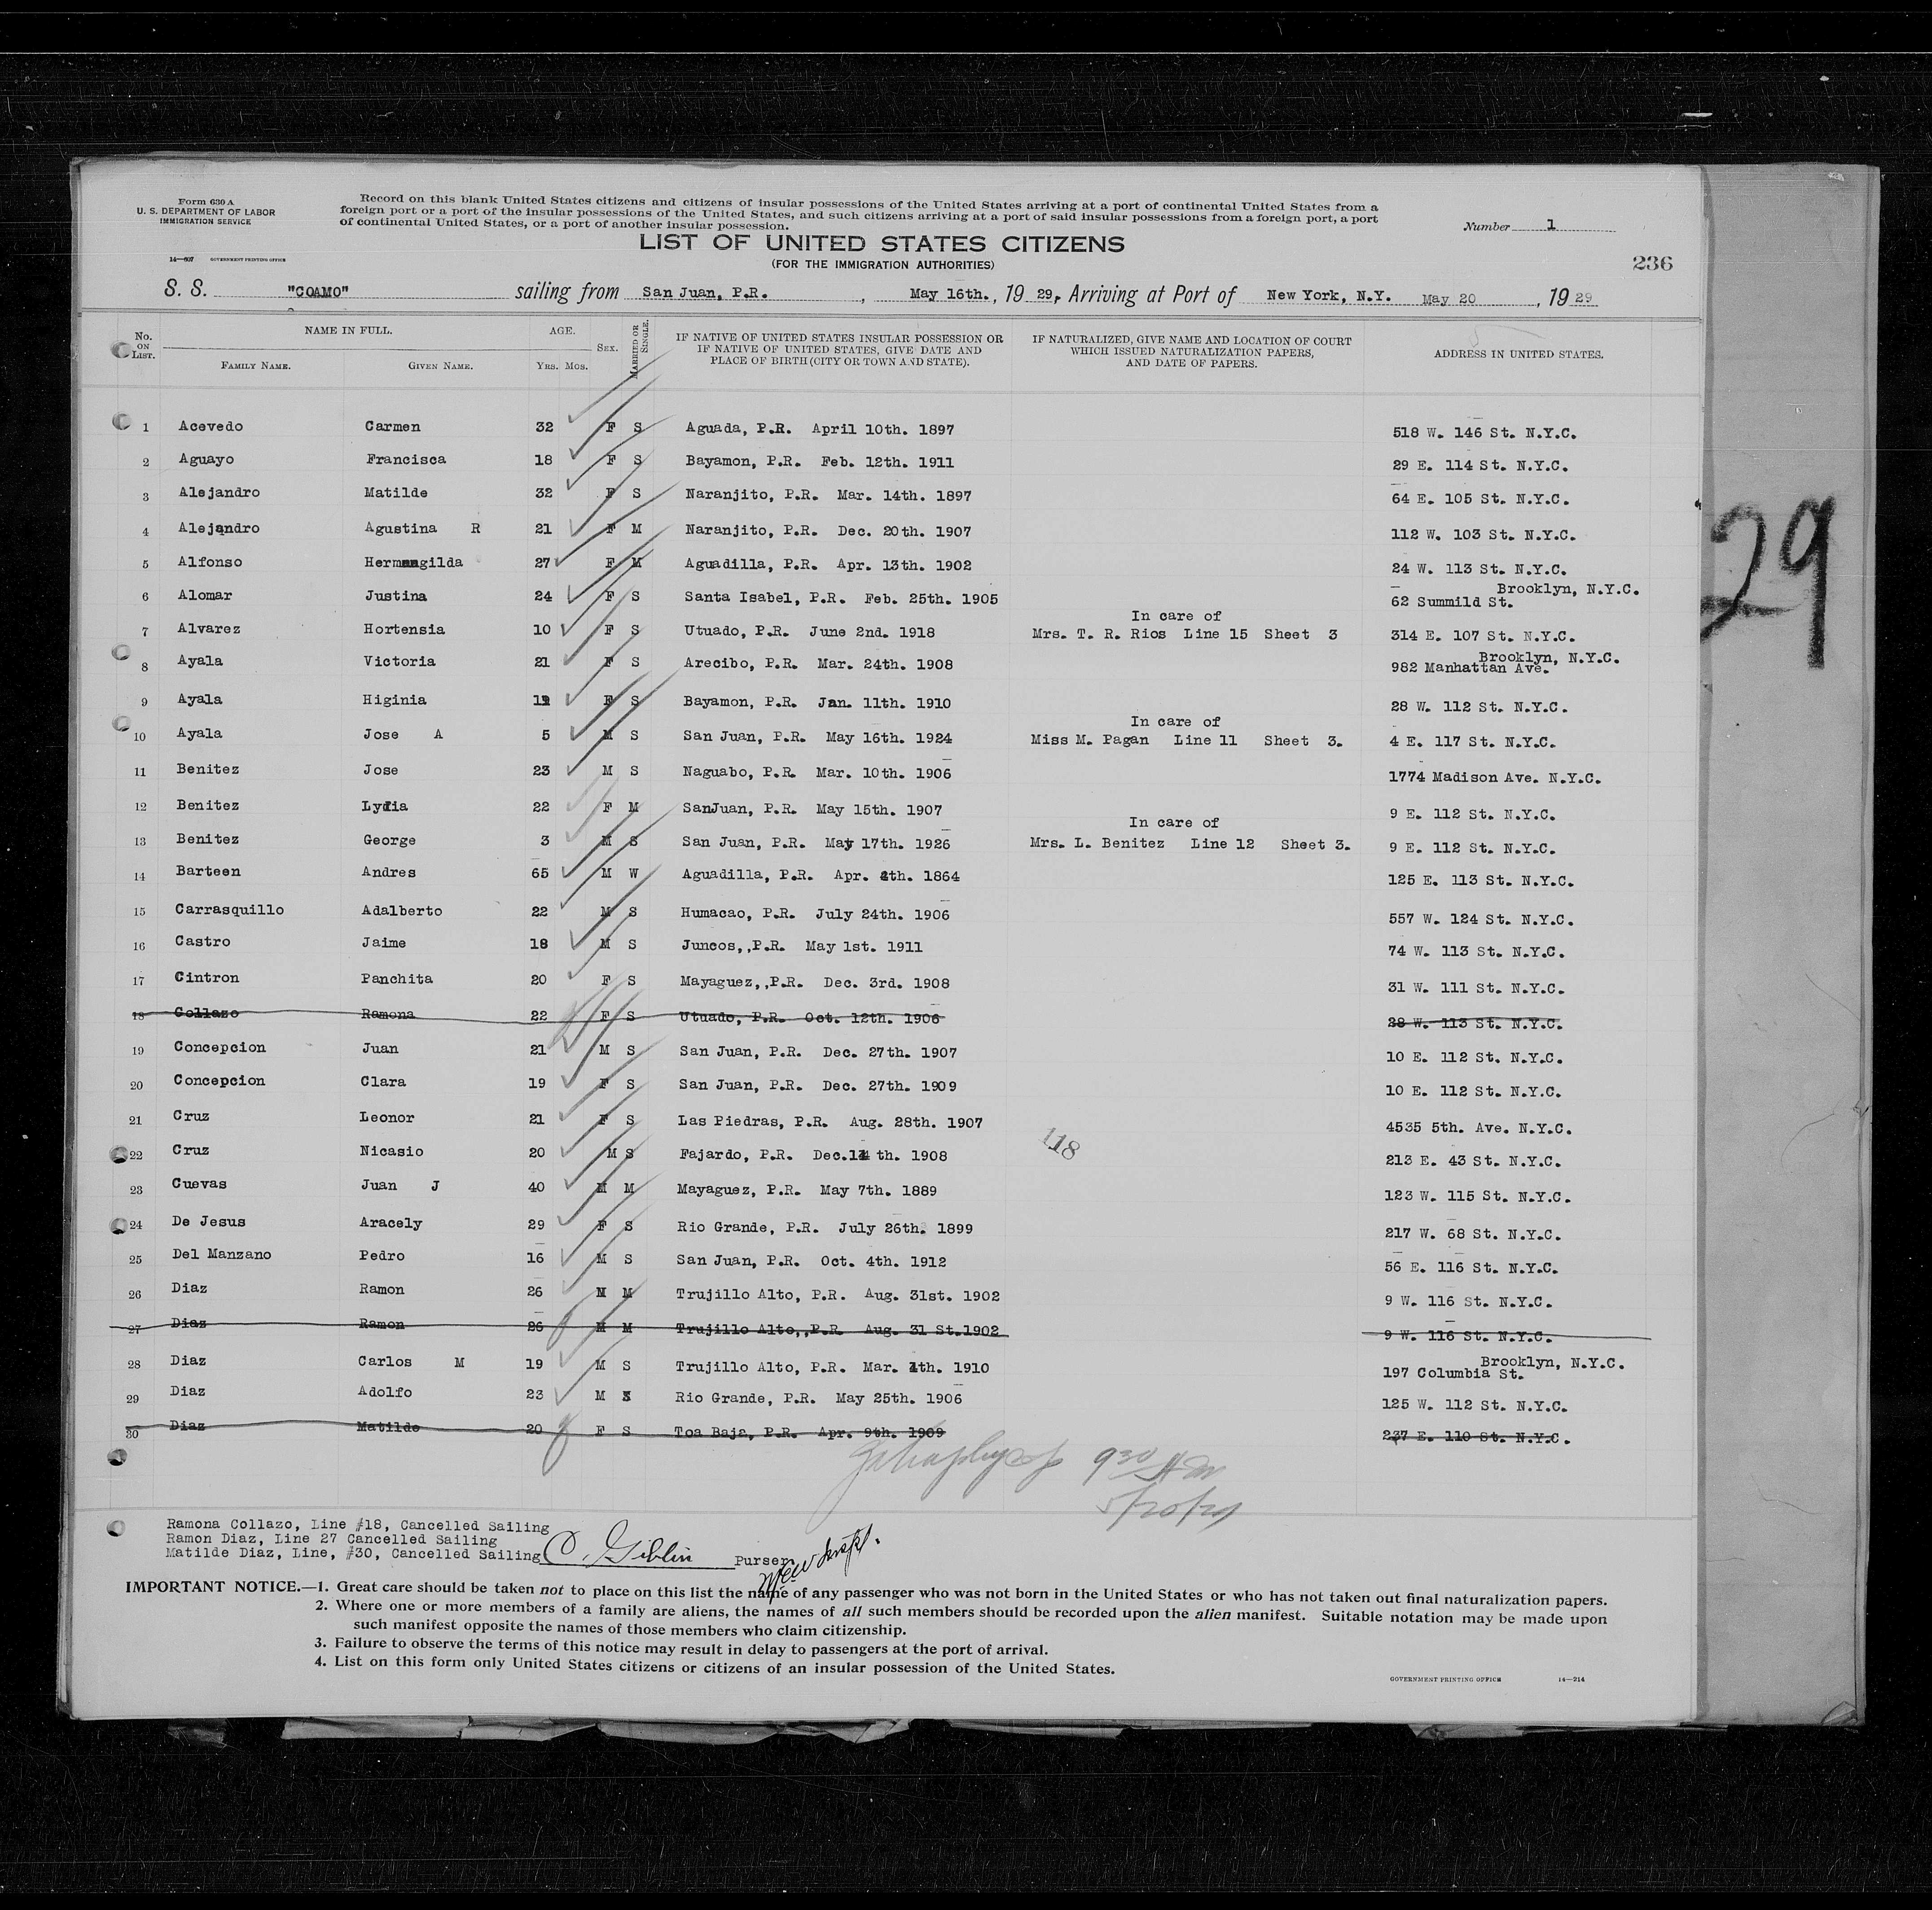 Form 630 A
U. S. DEPARTMENT OF LABOR
IMMIGRATION SERVICE
14—607 GOVERNMENT PRINTING OFFICE
Record on this blank United States citizens and citizens of insular possessions of the United States arriving at a port of continental United States from a
foreign port or a port of the insular possessions of the United States, and such citizens arriving at a port of said insular possessions from a foreign port, a port
of continental United States, or a port of another insular possession.
Number 1
LIST OF UNITED STATES CITIZENS
(FOR THE IMMIGRATION AUTHORITIES)
236
S. S. "COAMO" sailing from San Juan, P.R. , May 16th. , 19 29, Arriving at Port of New York, N.Y. May 20 , 19 29
No. ON LIST. NAME IN FULL. AGE. SEX. MARRIED OR SINGLE. IF NATIVE OF UNITED STATES INSULAR POSSESSION OR IF NATIVE OF UNITED STATES, GIVE DATE AND PLACE OF BIRTH (CITY OR TOWN AND STATE). IF NATURALIZED, GIVE NAME AND LOCATION OF COURT WHICH ISSUED NATURALIZATION PAPERS, AND DATE OF PAPERS. ADDRESS IN UNITED STATES.
FAMILY NAME. GIVEN NAME. YRS. MOS.
1 Acevedo Carmen 32 F S Aguada, P.R. April 10th. 1897 518 W. 146 St. N.Y.C.
2 Aguayo Francisca 18 F S Bayamon, P.R. Feb. 12th. 1911 29 E. 114 St. N.Y.C.
3 Alejandro Matilde 32 F S Naranjito, P.R. Mar. 14th. 1897 64 E. 105 St. N.Y.C.
4 Alejandro Agustina R 21 F M Naranjito, P.R. Dec. 20th. 1907 112 W. 103 St. N.Y.C.
5 Alfonso 27 F M Aguadilla, P.R. Apr. 13th. 1902 24 W. 113 St. N.Y.C.
6 Alomar Justina 24 F S Santa Isabel, P.R. Feb. 25th. 1905 62 Summild St. Brooklyn, N.Y.C.
In care of
7 Alvarez Hortensia 10 F S Utuado, P.R. June 2nd. 1918 Mrs. T. R. Rios Line 15 Sheet 3 314 E. 107 St. N.Y.C.
8 Ayala Victoria 21 F S Arecibo, P.R. Mar. 24th. 1908 982 Manhattan Ave. Brooklyn, N.Y.C.
9 Ayala Higinia F S Bayamon, P.R. Jan. 11th. 1910 28 W. 112 St. N.Y.C.
In care of
10 Ayala Jose A 5 M S San Juan, P.R. May 16th. 1924 Miss M. Pagan Line 11 Sheet 3. 4 E. 117 St. N.Y.C.
11 Benitez Jose 23 M S Naguabo, P.R. Mar. 10th. 1906 1774 Madison Ave. N.Y.C.
12 Benitez Lydia 22 F M SanJuan, P.R. May 15th. 1907 9 E. 112 St. N.Y.C.
In care of
13 Benitez George 3 M S San Juan, P.R. May 17th. 1926 Mrs. L. Benitez Line 12 Sheet 3. 9 E. 112 St. N.Y.C.
14 Barteen Andres 65 M W Aguadilla, P.R. Apr. 4th. 1864 125 E. 113 St. N.Y.C.
15 Carrasquillo Adalberto 22 M S Humacao, P.R. July 24th. 1906 557 W. 124 St. N.Y.C.
16 Castro Jaime 18 M S Juncos,,P.R. May 1st. 1911 74 W. 113 St. N.Y.C.
17 Cintron Panchita 20 F S Mayaguez,,P.R. Dec. 3rd. 1908 31 W. 111 St. N.Y.C.
18 Collazo Ramona 22 F S Utuado, P.R. Oct. 12th. 1906 28 W. 113 St. N.Y.C.
19 Concepcion Juan 21 M S San Juan, P.R. Dec. 27th. 1907 10 E. 112 St. N.Y.C.
20 Concepcion Clara 19 F S San Juan, P.R. Dec. 27th. 1909 10 E. 112 St. N.Y.C.
21 Cruz Leonor 21 F S Las Piedras, P.R. Aug. 28th. 1907 4535 5th. Ave. N.Y.C.
118
22 Cruz Nicasio 20 M S Fajardo, P.R. Dec.14 th. 1908 213 E. 43 St. N.Y.C.
23 Cuevas Juan J 40 M M Mayaguez, P.R. May 7th. 1889 123 W. 115 St. N.Y.C.
24 De Jesus Aracely 29 F S Rio Grande, P.R. July 26th. 1899 217 W. 68 St. N.Y.C.
25 Del Manzano Pedro 16 M S San Juan, P.R. Oct. 4th. 1912 56 E. 116 St. N.Y.C.
26 Diaz Ramon 26 M M Trujillo Alto, P.R. Aug. 31st. 1902 9 W. 116 St. N.Y.C.
27 Diaz Ramon 26 M M Trujillo Alto,,P.R. Aug. 31 St.1902 9 W. 116 St. N.Y.C.
28 Diaz Carlos M 19 M S Trujillo Alto, P.R. Mar. 4th. 1910 197 Columbia St. Brooklyn, N.Y.C.
29 Diaz Adolfo 23 M Rio Grande, P.R. May 25th. 1906 125 W. 112 St. N.Y.C.
30 Diaz Matilde 20 F S Toa Baja, P.R. Apr. 9th. 1909 237 E. 110 St. N.Y.C.
9 30 AM
5/20/29
Ramona Collazo, Line #18, Cancelled Sailing
Ramon Diaz, Line 27 Cancelled Sailing
Matilde Diaz, Line, #30, Cancelled Sailing C. Giblin Purser
IMPORTANT NOTICE.—1. Great care should be taken not to place on this list the name of any passenger who was not born in the United States or who has not taken out final naturalization papers.
2. Where one or more members of a family are aliens, the names of all such members should be recorded upon the alien manifest. Suitable notation may be made upon
such manifest opposite the names of those members who claim citizenship.
3. Failure to observe the terms of this notice may result in delay to passengers at the port of arrival.
4. List on this form only United States citizens or citizens of an insular possession of the United States.
GOVERNMENT PRINTING OFFICE 14—214
29